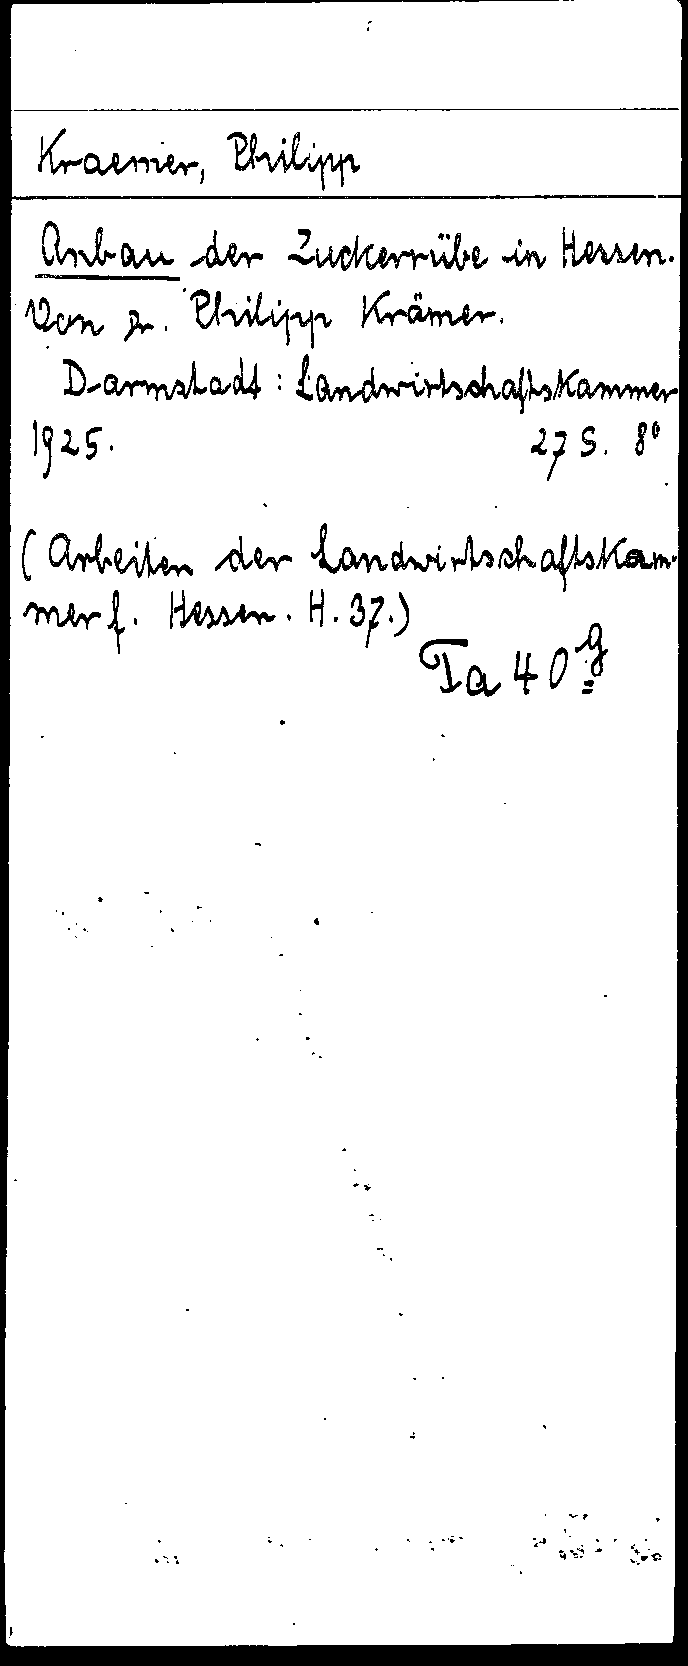 Kraemer, Philipp
Anbau der Zuckerrübe in Hessen.
Von Dr. Philipp Krämer.
Darmstadt: Landwirtschaftskammer
1925. 27 S. 8°
(Arbeiten der Landwirtschaftskam-
mer f. Hessen. H. 37.)
Ta 40g